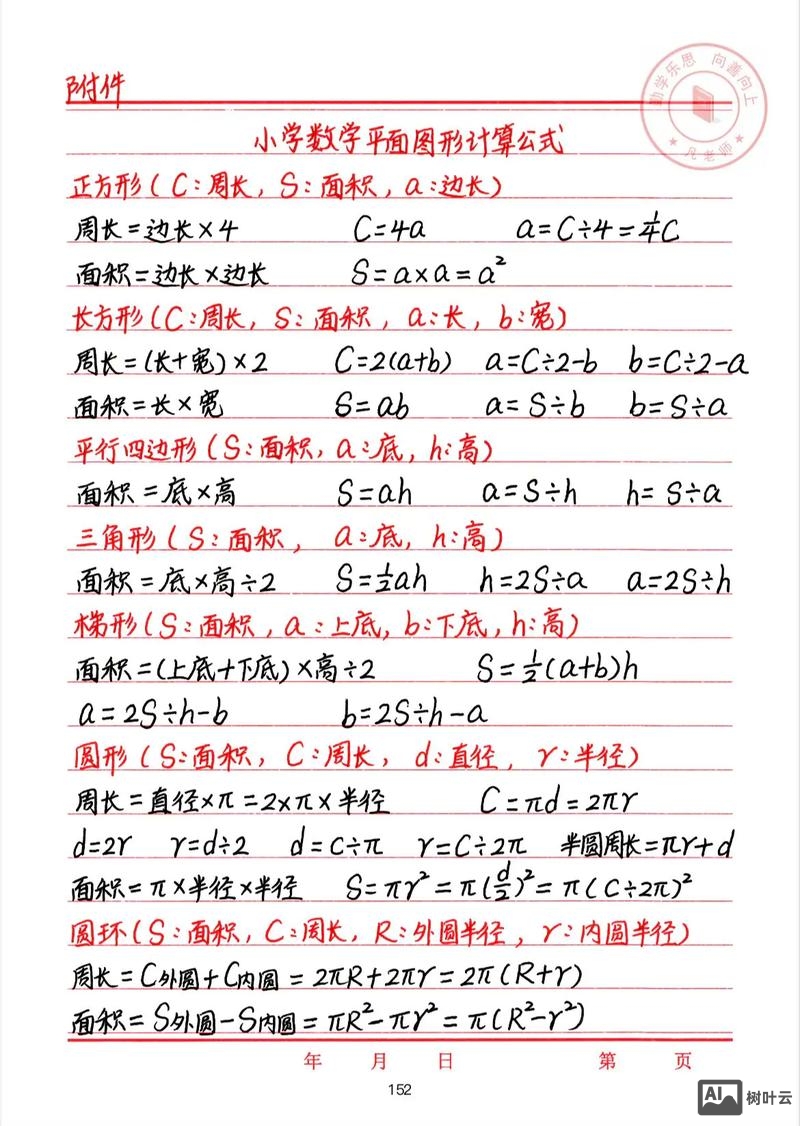 附件
勤学乐思 向善向上
凡老师
小学数学平面图形计算公式
正方形(C:周长,S:面积,a:边长)
周长=边长×4 C=4a a=C÷4=¼C
面积=边长×边长 S=a×a=a²
长方形(C:周长,S:面积,a:长,b:宽)
周长=(长+宽)×2 C=2(a+b) a=C÷2-b b=C÷2-a
面积=长×宽 S=ab a=S÷b b=S÷a
平行四边形(S:面积,a:底,h:高)
面积=底×高 S=ah a=S÷h h=S÷a
三角形(S:面积, a:底,h:高)
面积=底×高÷2 S=½ah h=2S÷a a=2S÷h
梯形(S:面积,a:上底,b:下底,h:高)
面积=(上底+下底)×高÷2 S=½(a+b)h
a=2S÷h-b b=2S÷h-a
圆形(S:面积,C:周长,d:直径,r:半径)
周长=直径×π=2×π×半径 C=πd=2πr
d=2r r=d÷2 d=C÷π r=C÷2π 半圆周长=πr+d
面积=π×半径×半径 S=πr²=π(d/2)²=π(C÷2π)²
圆环(S:面积,C:周长,R:外圆半径,r:内圆半径)
周长=C外圆+C内圆=2πR+2πr=2π(R+r)
面积=S外圆-S内圆=πR²-πr²=π(R²-r²)
年 月 日 第 页
152
AI 树叶云